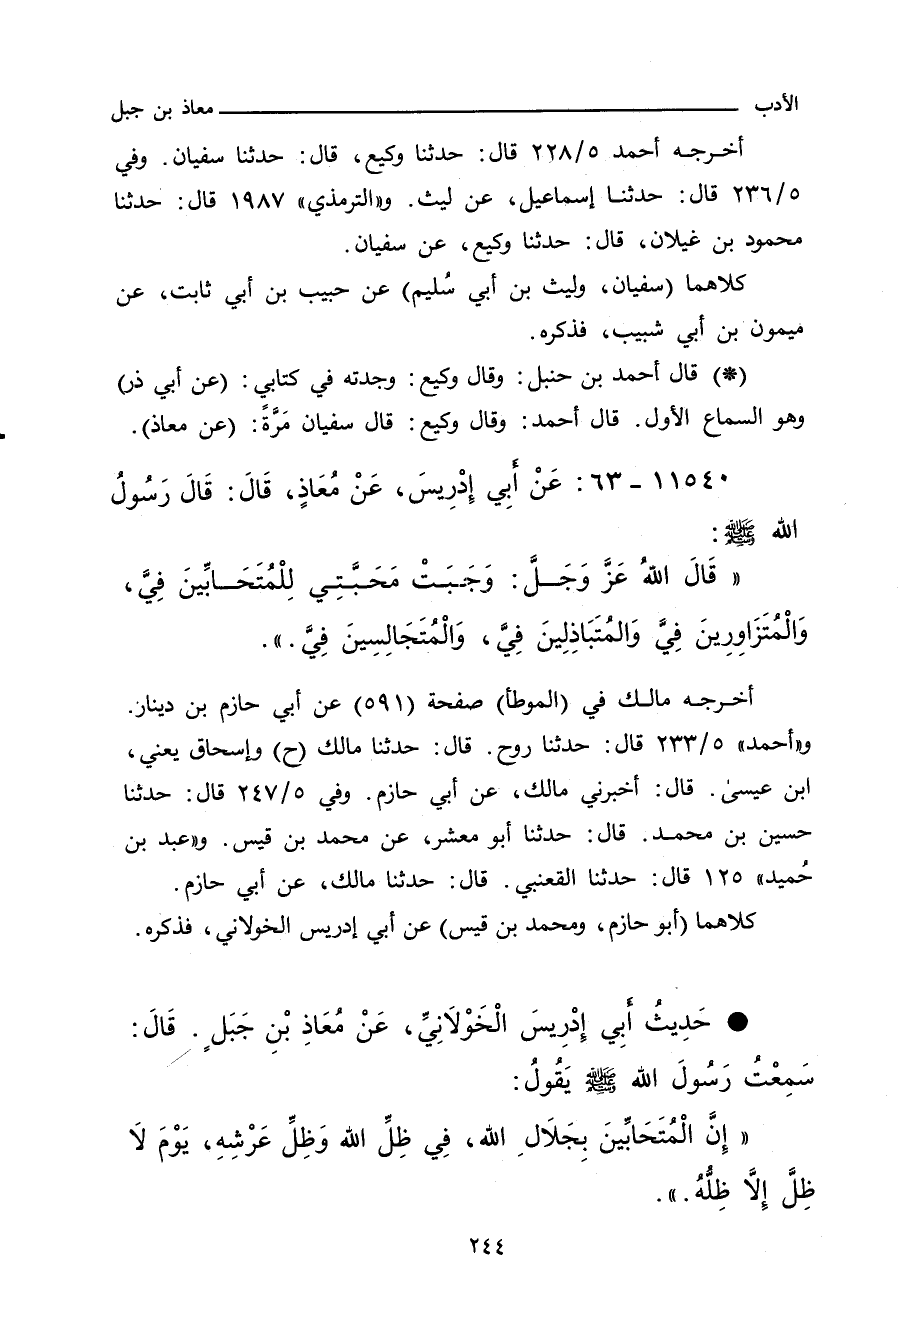 الأدب ــــــــــــــــــــ معاذ بن جبل
أخرجه أحمد ٢٢٨/٥ قال: حدثنا وكيع، قال: حدثنا سفيان. وفي
٢٣٦/٥ قال: حدثنا إسماعيل، عن ليث. و«الترمذي» ١٩٨٧ قال: حدثنا
محمود بن غيلان، قال: حدثنا وكيع، عن سفيان.
كلاهما (سفيان، وليث بن أبي سُليم) عن حبيب بن أبي ثابت، عن
ميمون بن أبي شبيب، فذكره.
(*) قال أحمد بن حنبل: وقال وكيع: وجدته في كتابي: (عن أبي ذر)
وهو السماع الأول. قال أحمد: وقال وكيع: قال سفيان مَرَّةً: (عن معاذ).
١١٥٤٠ ـ ٦٣: عَنْ أَبِي إِدْرِيسَ، عَنْ مُعَاذٍ، قَالَ: قَالَ رَسُولُ
الله ﷺ:
« قَالَ اللهُ عَزَّ وَجَلَّ: وَجَبَتْ مَحَبَّتِي لِلْمُتَحَابِّينَ فِيَّ،
وَالْمُتَزَاوِرِينَ فِيَّ وَالمُتَبَاذِلِينَ فِيَّ، وَالْمُتَجَالِسِينَ فِيَّ.».
أخرجه مالك في (الموطأ) صفحة (٥٩١) عن أبي حازم بن دينار.
و«أحمد» ٢٣٣/٥ قال: حدثنا روح. قال: حدثنا مالك (ح) وإسحاق يعني،
ابن عيسىٰ. قال: أخبرني مالك، عن أبي حازم. وفي ٢٤٧/٥ قال: حدثنا
حسين بن محمد. قال: حدثنا أبو معشر، عن محمد بن قيس. و«عبد بن
حُميد» ١٢٥ قال: حدثنا القعنبي. قال: حدثنا مالك، عن أبي حازم.
كلاهما (أبو حازم، ومحمد بن قيس) عن أبي إدريس الخولاني، فذكره.
● حَدِيثُ أَبِي إِدْرِيسَ الْخَوْلَانِيِّ، عَنْ مُعَاذِ بْنِ جَبَلٍ. قَالَ:
سَمِعْتُ رَسُولَ الله ﷺ يَقُولُ:
« إِنَّ الْمُتَحَابِّينَ بِجَلَالِ الله، فِي ظِلِّ الله وَظِلِّ عَرْشِهِ، يَوْمَ لَا
ظِلَّ إِلَّا ظِلُّهُ.».
٢٤٤